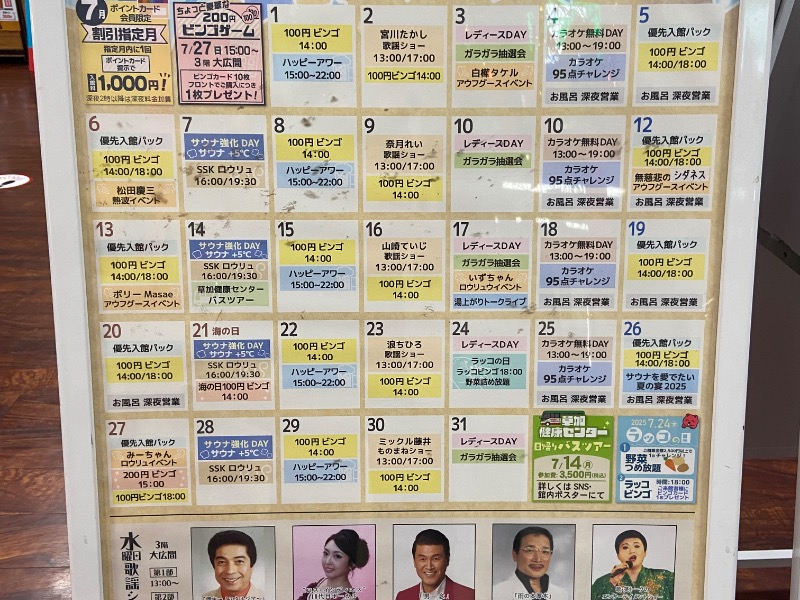 7月
ポイントカード
会員限定
割引指定月
指定月内に1回
ポイントカード
提示で
入館料
1,000円!
深夜2時以降は深夜料金加算
ちょっと豪華な
200円
ビンゴゲーム
7/27日 15:00〜
3階 大広間
ビンゴカード10枚
フロントでご購入につき
1枚プレゼント!
1
100円 ビンゴ
14:00
ハッピーアワー
15:00〜22:00
2
宮川たかし
歌謡ショー
13:00/17:00
100円ビンゴ14:00
3
レディースDAY
ガラガラ抽選会
白樫タケル
アウフグースイベント
4
カラオケ無料DAY
13:00〜19:00
カラオケ
95点チャレンジ
お風呂 深夜営業
5
優先入館パック
100円 ビンゴ
14:00/18:00
お風呂 深夜営業
6
優先入館パック
100円 ビンゴ
14:00/18:00
松田慶三
熱波イベント
7
サウナ強化DAY
サウナ +5℃
SSK ロウリュ
16:00/19:30
8
100円 ビンゴ
14:00
ハッピーアワー
15:00〜22:00
9
奈月れい
歌謡ショー
13:00/17:00
100円 ビンゴ
14:00
10
レディースDAY
ガラガラ抽選会
10
カラオケ無料DAY
13:00〜19:00
カラオケ
95点チャレンジ
お風呂 深夜営業
12
優先入館パック
100円 ビンゴ
14:00/18:00
無慈悲の シダネス
アウフグースイベント
お風呂 深夜営業
13
優先入館パック
100円 ビンゴ
14:00/18:00
ポリーMasae
アウフグースイベント
14
サウナ強化DAY
サウナ +5℃
SSK ロウリュ
16:00/19:30
草加健康センター
バスツアー
15
100円 ビンゴ
14:00
ハッピーアワー
15:00〜22:00
16
山崎ていじ
歌謡ショー
13:00/17:00
100円 ビンゴ
14:00
17
レディースDAY
ガラガラ抽選会
いずちゃん
ロウリュウイベント
湯上がりトークライブ
18
カラオケ無料DAY
13:00〜19:00
カラオケ
95点チャレンジ
お風呂 深夜営業
19
優先入館パック
100円 ビンゴ
14:00/18:00
お風呂 深夜営業
20
優先入館パック
100円 ビンゴ
14:00/18:00
お風呂 深夜営業
21 海の日
サウナ強化DAY
サウナ +5℃
SSK ロウリュ
16:00/19:30
海の日100円 ビンゴ
14:00
22
100円 ビンゴ
14:00
ハッピーアワー
15:00〜22:00
23
浪ちひろ
歌謡ショー
13:00/17:00
100円 ビンゴ
14:00
24
レディースDAY
ラッコの日
ラッコビンゴ18:00
野菜詰め放題
25
カラオケ無料DAY
13:00〜19:00
カラオケ
95点チャレンジ
お風呂 深夜営業
26
優先入館パック
100円 ビンゴ
14:00/18:00
サウナを愛でたい
夏の宴2025
お風呂 深夜営業
27
優先入館パック
みーちゃん
ロウリュウイベント
200円 ビンゴ
15:00
100円ビンゴ18:00
28
サウナ強化DAY
サウナ +5℃
SSK ロウリュ
16:00/19:30
29
100円 ビンゴ
14:00
ハッピーアワー
15:00〜22:00
30
ミックル藤井
ものまねショー
13:00/17:00
100円 ビンゴ
14:00
31
レディースDAY
ガラガラ抽選会
草加
健康センター
日帰りバスツアー
7/14(月)
参加費:3,500円(税込)
詳しくはSNS・
館内ポスターにて
2025 7.24木
ラッコの日
1
野菜
つめ放題
2
ラッコ
ビンゴ
時間:18:00
ご来館者様に
ビンゴカード
1枚プレゼント
水曜日歌謡シ
3階
大広間
第1部
13:00〜
第2部